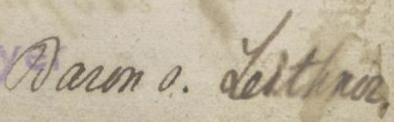 Baron v. Leithner.